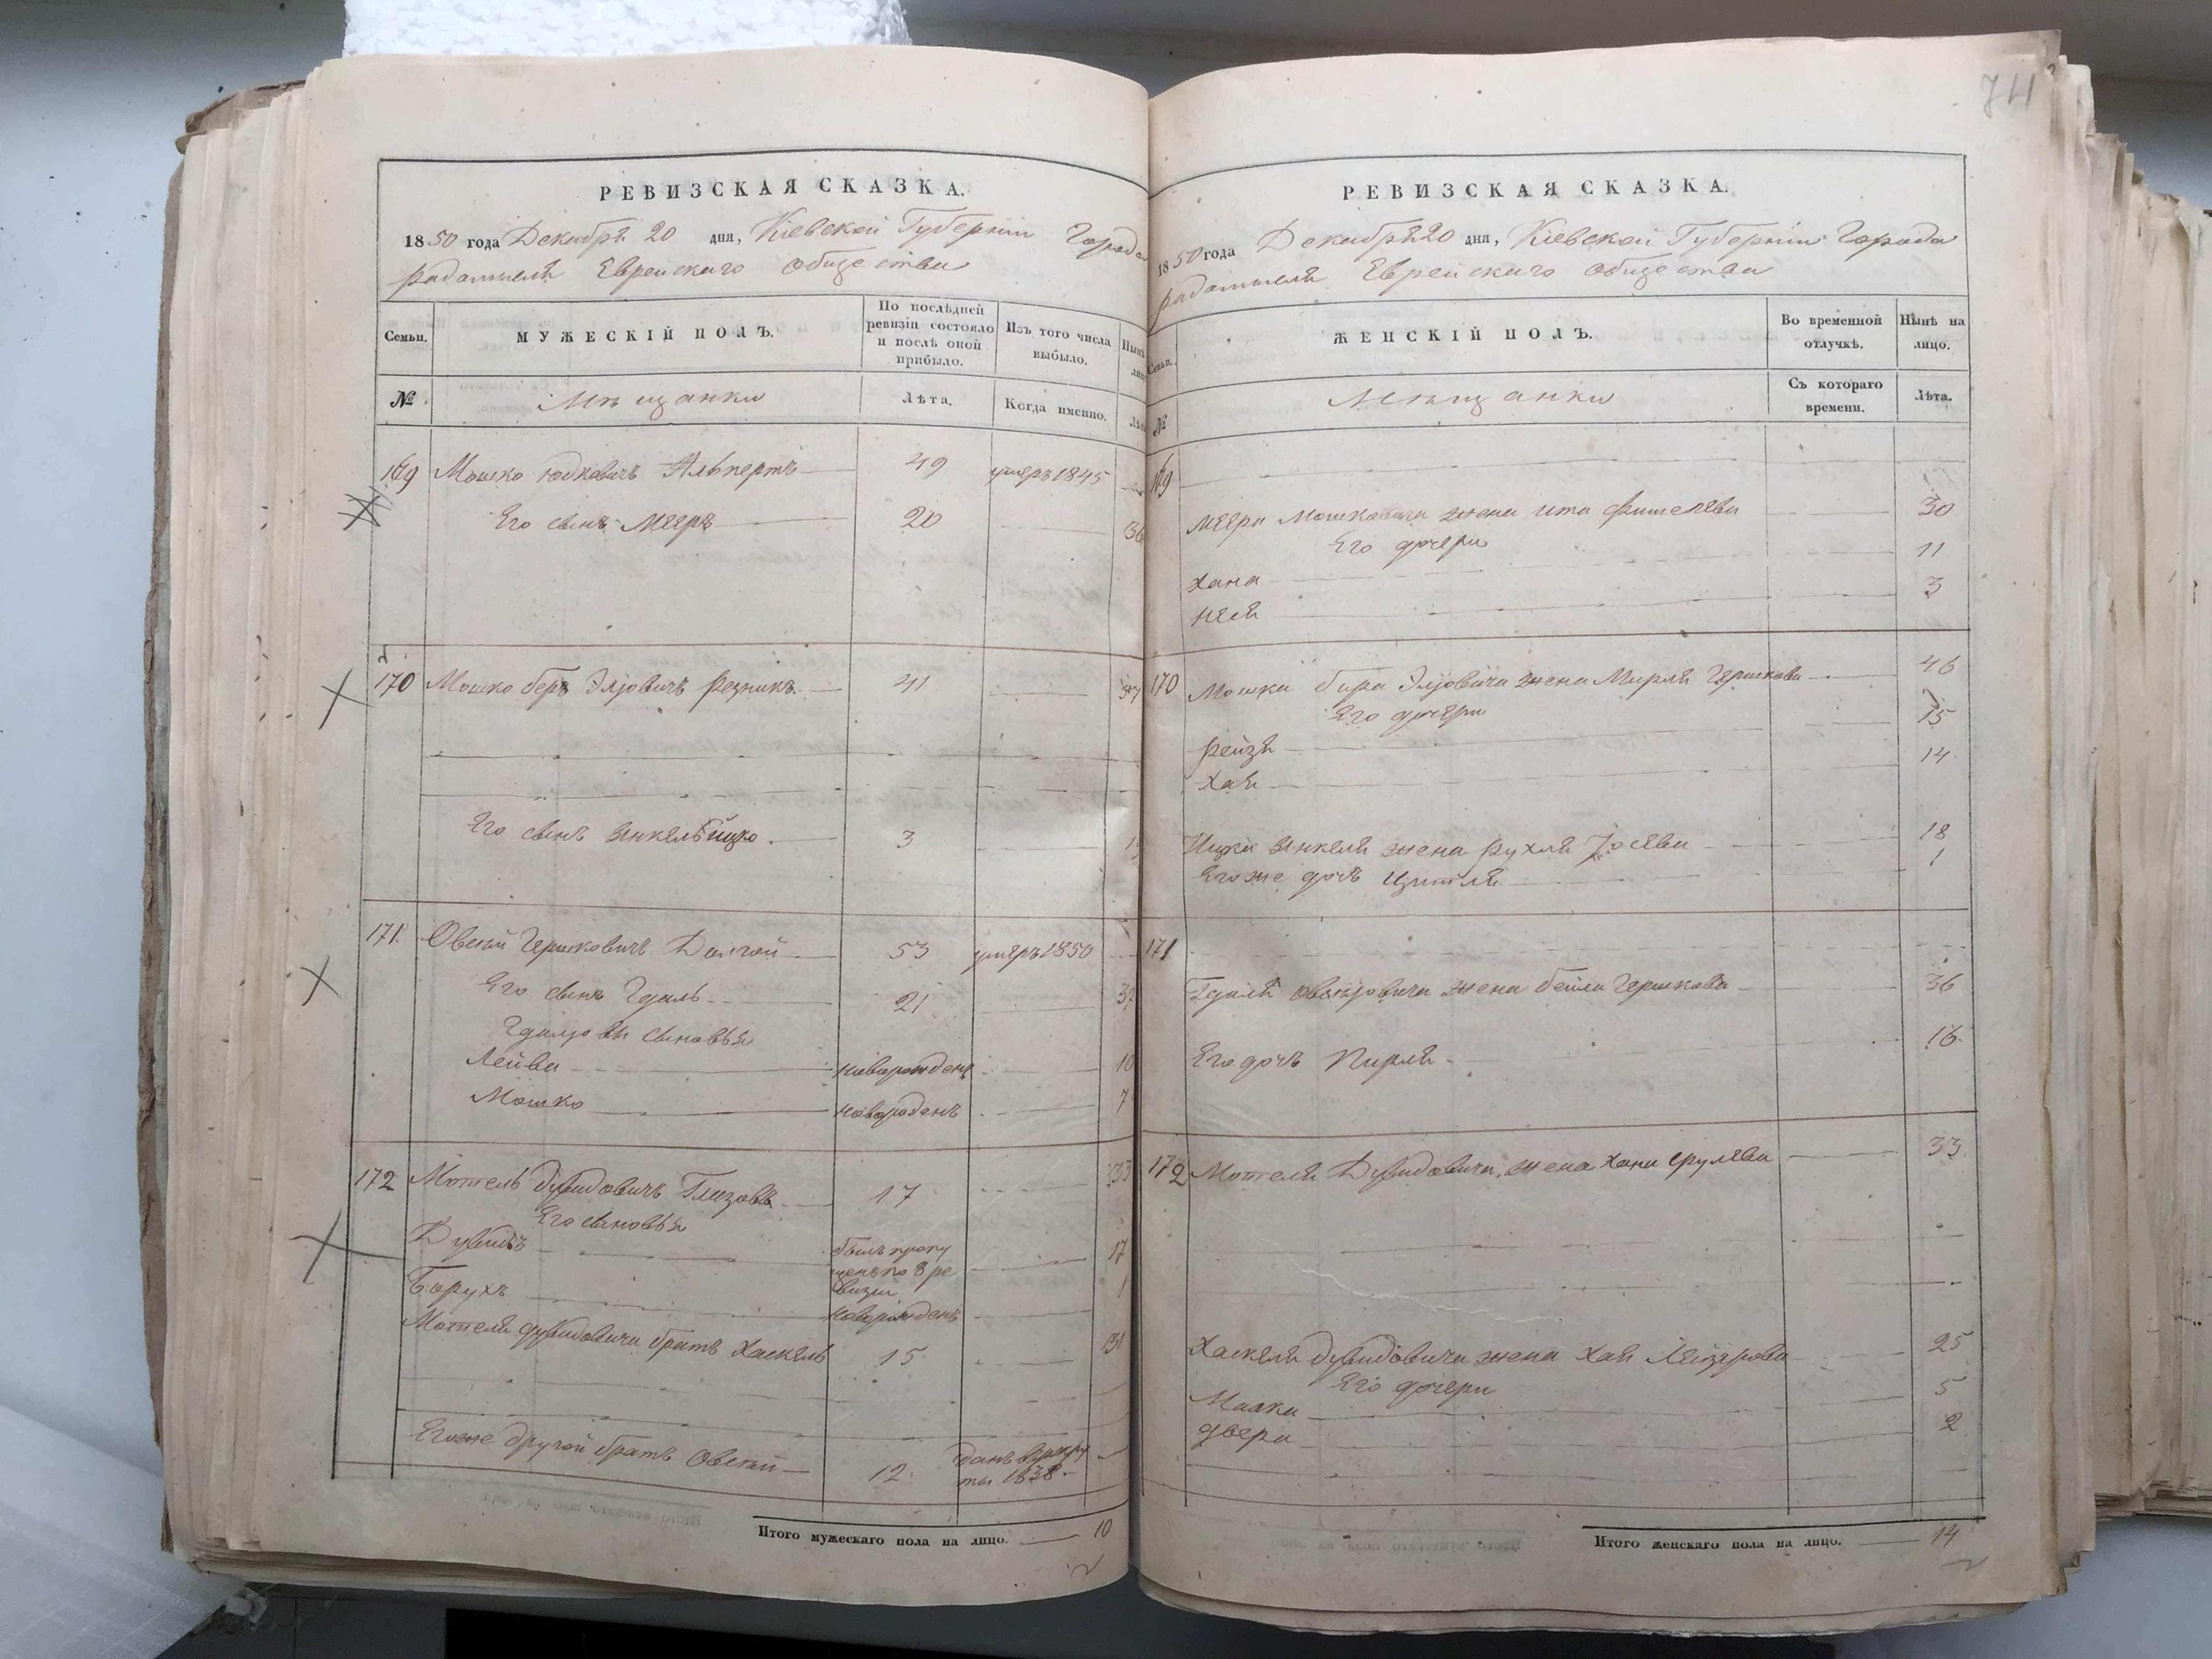 РЕВИЗСКАЯ СКАЗКА.
1850 года Декабря 20 дня, Кіевской Губерніи Города
Радомысля Еврейскаго общества
Семьи.
МУЖЕСКІЙ ПОЛЪ.
По послѣдней ревизіи состояло и послѣ оной прибыло.
Изъ того числа выбыло.
№
Мѣщанки
Лѣта.
Когда именно.
169 Мошко Юдковичъ Альпертъ 49 умеръ 1845
Его сынъ Мееръ 20 36
170 Мошко беръ Эліовичъ Резникъ 41
Его сынъ Янкель Ицко. 3
171 Овсѣй Гершковичъ Долгой 53 умеръ 1850
Его сынъ Гдаль 21 37
Гдалевы сыновья
Лейба новорожденъ 10
Мошко новорожденъ 7
172 Мотель Дувидовичъ Глизовъ 17 33
Его сыновья
Дувидъ былъ пропущенъ по 8 ревизіи 17
Борухъ новорожденъ 1
Мотеля Дувидовича братъ Хаскель 15 31
Егоже другой братъ Овсѣй 12 данъ в рекруты 1838
Итого мужескаго пола на лицо. 10
74
РЕВИЗСКАЯ СКАЗКА.
1850 года Декабря 20 дня, Кіевской Губерніи Города
Радомысля Еврейскаго общества
Семьи.
ЖЕНСКІЙ ПОЛЪ.
Во временной отлучкѣ.
Нынѣ на лицо.
№
Мѣщанки
Съ котораго времени.
Лѣта.
169
Меера Мошковича жена Ита Фишелева 30
Его дочери 11
Хана 3
Неся
170 Мошка Бера Эліовича жена Мирля Гершкова 46
Его дочери 15
Рейзя 14
Хая
Ицка Янкеля жена Рухля Іосева 18
Егоже дочь Цитля 1
171
Гдаля Овсѣовича жена Бейла Гершкова 36
Его дочь Пирля 16
172 Мотеля Дувидовича жена Хана Срулева 33
Хаскеля Дувидовича жена Хая Лейзерова 25
Его дочери 5
Малка 2
Двера
Итого женскаго пола на лицо. 14